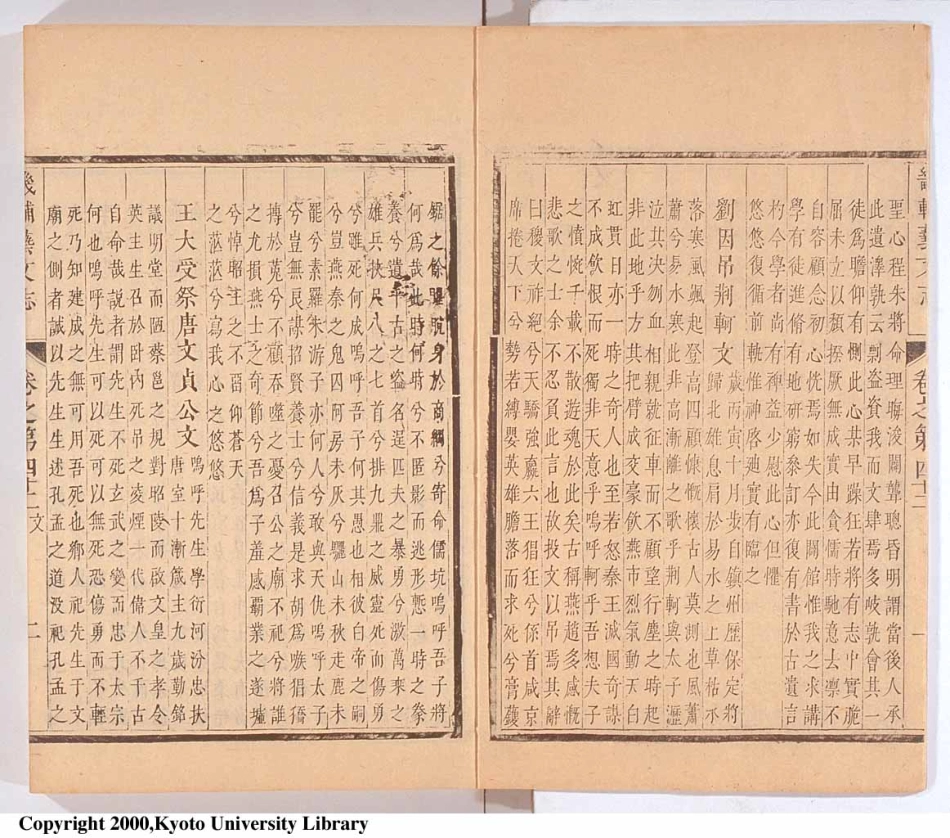 畿輔藝文志 卷之第四十二 一
聖心程朱將命理晦浚關聾聰昏明謂當後人承
此遺澤孰云剽盜資我而文肆焉多岐孰會其一
徒爲瞻仰有惻此心某早躁狂若將有志中實脆
屈未立以頽揆厥無成實由貪懦時馳意去凛不
自容顧念初心恍焉如失今此闢館惟我之求講
學有徒進脩有地研窮叅訂亦復有書於古遺言
杓今學者尚有神益少慰此心但懼
悠悠復循前軌惟神啓迪實有臨之
劉因吊荆軻文 歲丙寅十月步自鎮州歷保定將
歸北雄息肩於易水之上草枯木
落寒風颯起登高四顧慷慨懷古人莫測也風蕭
蕭兮易水寒此非高漸離之歌乎荆軻與太子瀝
泣共決刎血相親就征車而不顧望行塵之時起
非此地乎方其把臂成交豪飲燕市烈氣動天白
虹貫日亦一時之奇人也至其怒秦王滅國奇謀
不成飲恨而死獨非天意乎嗚呼軻乎吾想夫子
之憤惋千載不散遊魂於此矣古稱燕趙多感慨
悲歌之士余不忍負此言也故投文以吊焉其辭
曰稷文祚絕兮天驕強嬴六王猖狂兮係首咸京
席捲天下兮勢若縛嬰英雄膽落而求死兮膏鑊
鋸之餘腥脫身於商網兮寄命儒坑嗚呼吾子將
何爲哉此時何時兮不匿影而逃形慙一時之豢
養兮遺千古之盜名逞匹夫之暴勇兮激萬乘之
雄兵挾尺八之七首兮排九鼎之威靈死而傷勇
兮雖死何成嗚呼吾子兮何其愚也相彼白帝之嗣
兮豈燕秦之鬼囚阿房未灰兮驪山未秋走鹿未
罷兮素羅朱游子亦何人兮敢與天仇嗚呼太子
兮豈無良謀招賢養士兮信義是求胡爲嗾猖獝
搏於菟兮不顧吞噬之憂召公之廟不祀兮將誰
之尤損燕士之奇節兮吾爲子羞感霸業之遂墟
兮悼昭王之不 仰蒼天
之茫茫兮寫我心之悠悠
王大受祭唐文貞公文 嗚呼先生學衍河汾忠扶
唐室十漸箴主九歲勤銘
議明堂而陋蔡邕之規對昭陵而啟文皇之孝令
英主生召於畛内死吊之凌煙一代偉人不于古
自命哉說者謂先生不死玄武之變而忠于太宗
何也嗚呼先生可以死可以無死恐傷勇而不輕
死乃知建成之無可用吾死也鄉人祀先生于文
廟之側者誠以先生生述孔孟之道沒祀孔孟之
畿輔藝文志 卷之第四十二 文 二
Copyright 2000,Kyoto University Library